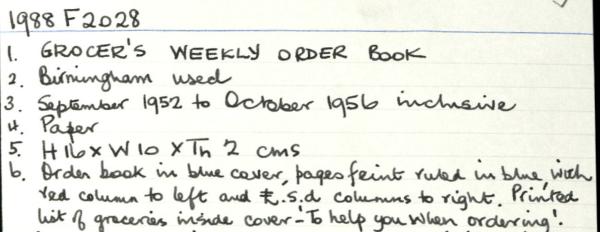 1988 F2028
1. GROCER'S WEEKLY ORDER BOOK
2. Birmingham used
3. September 1952 to October 1956 inclusive
4. Paper
5. H 16 x W 10 x Th 2 cms
6. Order book in blue cover, pages feint ruled in blue with
red column to left and £.s.d columns to right. Printed
list of groceries inside cover - 'To help you when ordering'.